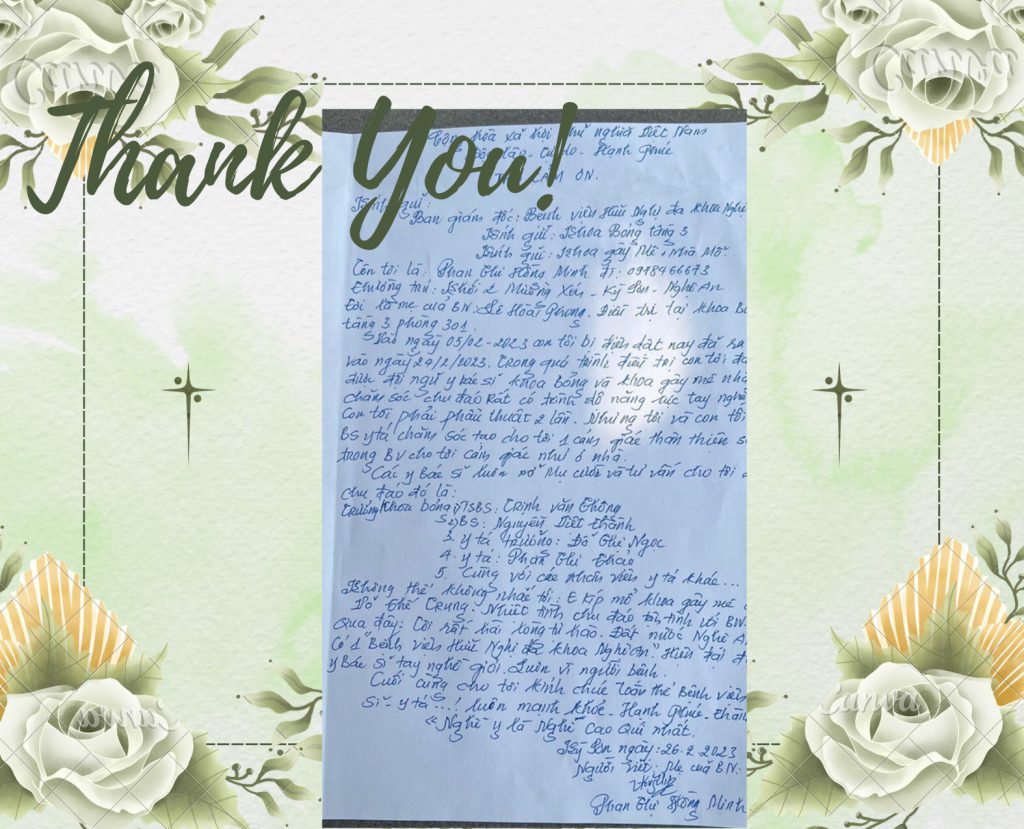 Thank You!
Cộng hòa xã hội chủ nghĩa Việt Nam
Độc lập - Tự do - Hạnh Phúc
CẢM ƠN.
Kính gửi:
Ban giám đốc: Bệnh viện Hữu Nghị đa khoa Nghệ
Kính gửi: Khoa Bỏng tầng 3
Kính gửi: Khoa gây Mê, Nhà Mổ.
Tên tôi là: Phan Thị Hồng Minh ĐT:
Thường trú: Khối 2 Mường Xén - Kỳ Sơn - Nghệ An
Tôi là mẹ của BN: Lê Hoài Phong. Điều trị tại khoa Bỏ
tầng 3 phòng 301.
Vào ngày 05/02-2023 con tôi bị điện dật nay đã ra
vào ngày 24/2/2023. Trong quá trình điều trị con tôi đã
được đội ngũ y bác sĩ khoa Bỏng và khoa gây mê nhà
chăm sóc chu đáo Rất có trình độ năng lực tay nghề
Con tôi phải phẫu thuật 2 lần. Nhưng tôi và con tôi
BS y tá chăm sóc tạo cho tôi 1 cảm giác thân thiện
trong BV cho tôi cảm giác như ở nhà.
Các y Bác sĩ luôn nở nụ cười và tư vấn cho tôi
chu đáo đó là:
Trưởng khoa bỏng 1) TSBS: Trịnh văn Thông
2) BS: Nguyễn Viết Thành
3. y tá trưởng: Đỗ Thị Ngọc
4. y tá: Phan Thị Thảo
5. Cùng với các nhân viên y tá khác...
Không thể không nhắc tới: E kíp mổ khoa gây mê
Võ Thế Trung. Nhiệt tình chu đáo tận tình với BN.
Qua đây: Tôi rất hài lòng tự hào. Đất nước Nghệ A
Có 1 "Bệnh viện Hữu Nghị đa khoa Nghệ An" Hiện tại
y Bác sĩ tay nghề giỏi. Luôn vì người bệnh.
Cuối cùng cho tôi kính chúc toàn thể Bệnh viện
Sĩ - y tá...! luôn mạnh khỏe - Hạnh Phúc - thành
"Nghề y là Nghề Cao Quí nhất.
Kỳ Sơn ngày: 26.2.2023
Người viết: Mẹ của BN.
Phan Thị Hồng Minh